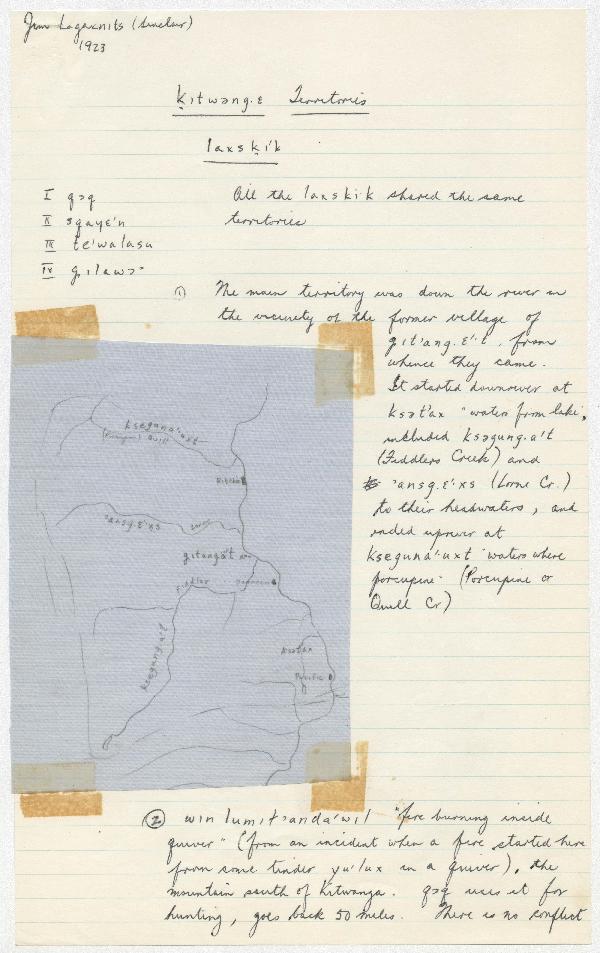 Jim Lagaxnits (Sinclair)
1923
ḳıtwəng·ɛ Territories
laxsḳi'k
I qɔq
II sgayɛ'n
III tɛ'walasu
IV gılawɔ·
All the laxskik shared the same
territories
① The main territory was down the river in
the vicinity of the former village of
gıt'ang·ɛ'·t, from
whence they came.
It started downriver at
ksət'ax "waters from lake",
included ksəgung·a't
(Fiddlers Creek) and
'ansg·ɛ'·xs (Lorne Cr.)
to their headwaters, and
ended upriver at
kseguna'·uxt "waters where
porcupine" (Porcupine or
Quill Cr)
kseguna'·uxt
(Porcupine) Quill
Ritchie
'ansg·ɛ'xs
gıtanga't
Fiddler
Dorreen
ksegung·a't
ksətax
Pacific
② win lumıt'anda'wıl "fire burning inside
quiver" (from an incident when a fire started here
from some tinder yu'lux in a quiver), the
mountain south of Kitwanga. qɔq uses it for
hunting, goes back 50 miles. There is no conflict